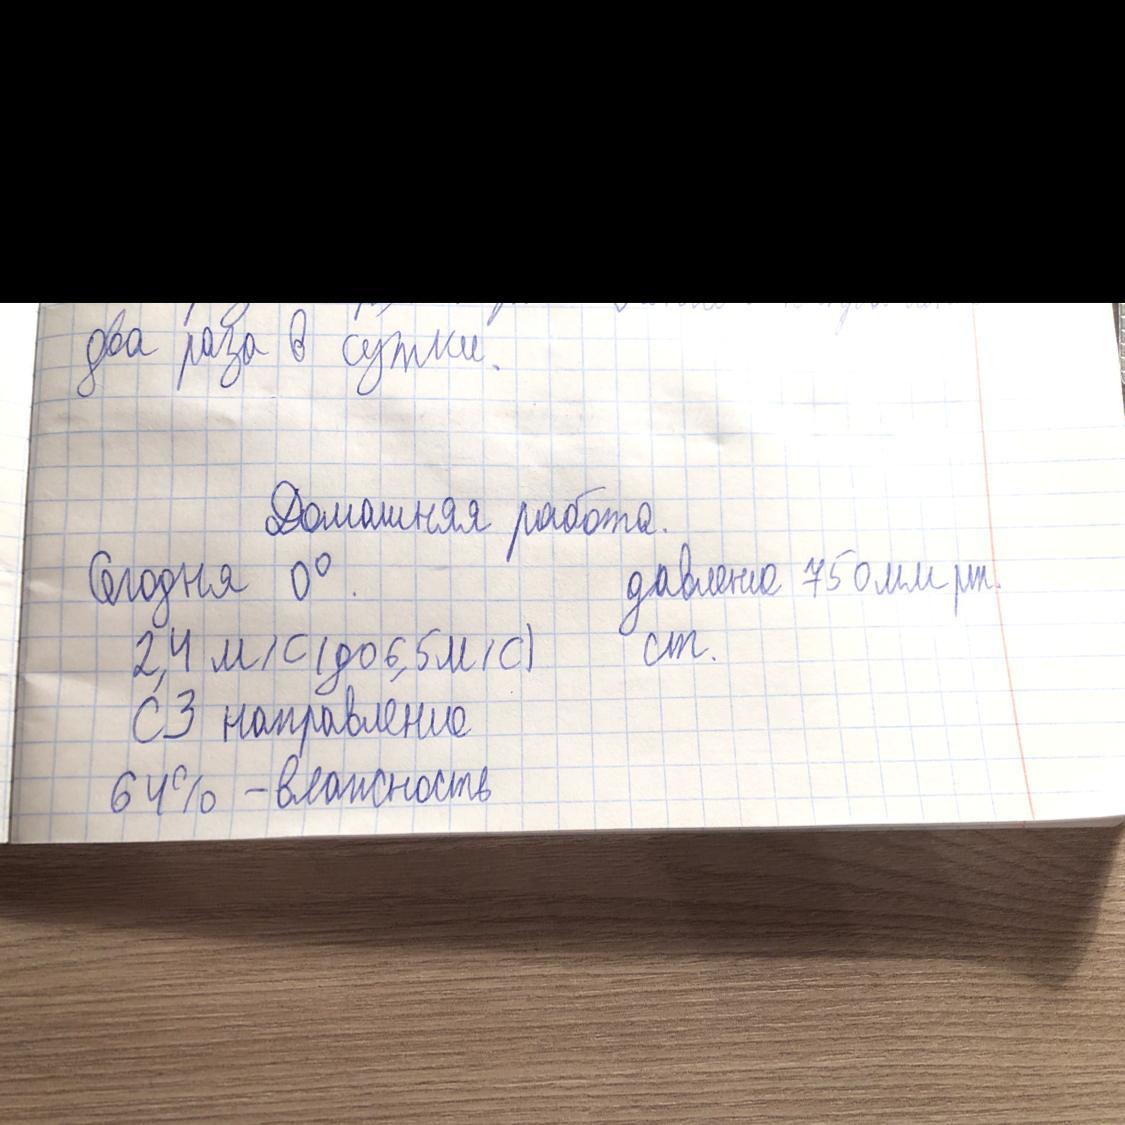 два раза в сутки.
Домашняя работа.
Сегодня 0°.
давление 750мм рт.
2,4 м/с (до 6,5м/с)
ст.
СЗ направление
64% - влажность